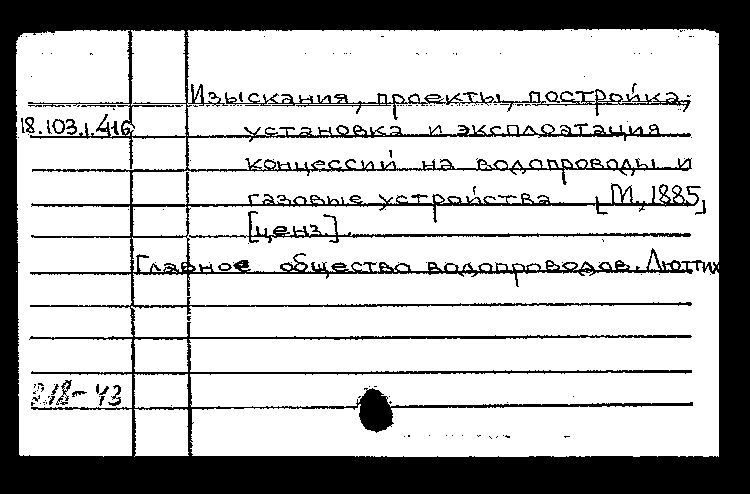 Изыскания, проекты, постройка,
18.103.1.416 установка и эксплоатация
концессий на водопроводы и
газовые устройства [М., 1885]
[ценз.].
Главное общество водопроводов. Люттих
218-43